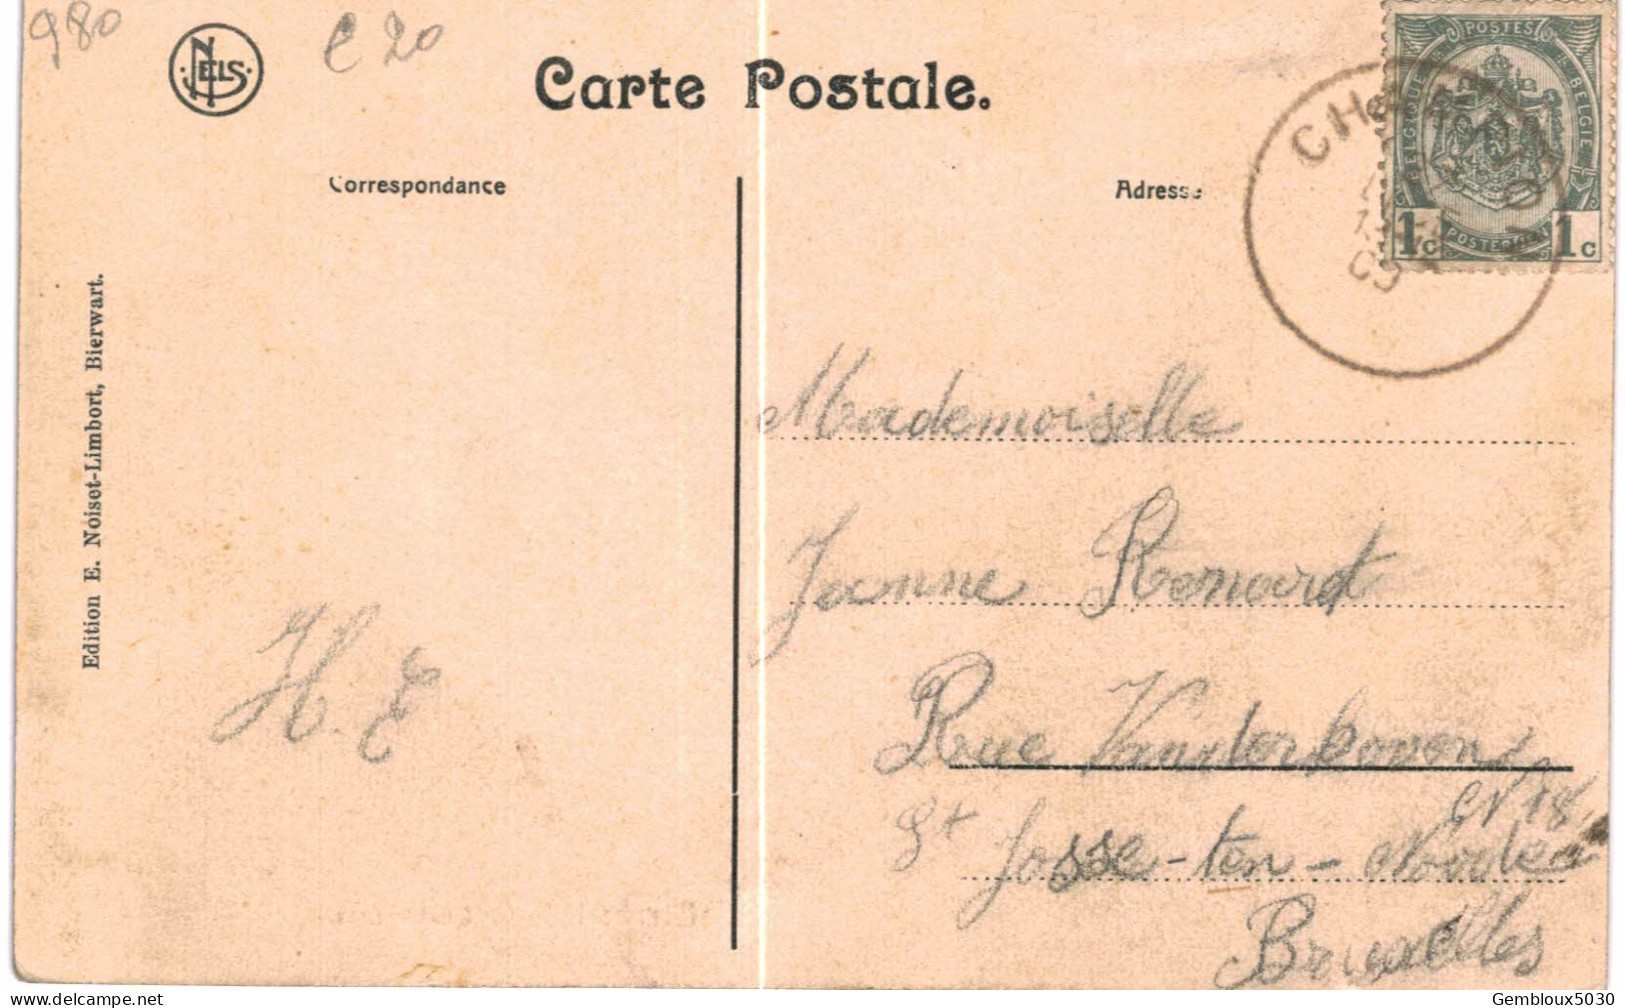 980
NELS
€ 20
Carte Postale.
Correspondance
Adresse
POSTES
BELGIQUE
BELGIË
1c
POSTERIJEN
1c
09
Edition E. Noiset-Limbort, Bierwart.
H. E
Mademoiselle
Jeanne Renard
Rue Vanderhoven
N 18
St Josse-ten-Noode
Bruxelles
Gembloux5030